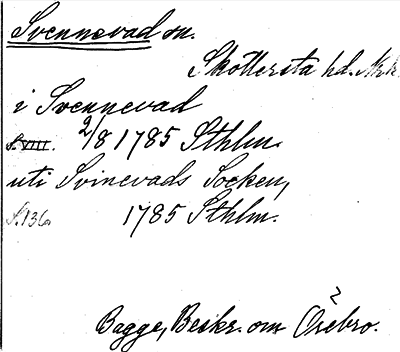 Svennevad sn.
Skottersta hd. Nrk
i Svennevad
S. VIII. 2/8 1785 Sthlm.
uti Svinevads Socken,
S. 136. 1785 Sthlm.
Bagge, Beskr. om Örebro.